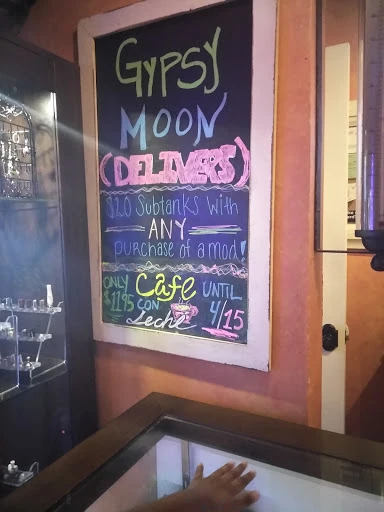 GYPSY
MOON
(DELIVERS)
$20 Subtanks with
ANY
purchase of a mod!
ONLY Cafe UNTIL
$11.95 CON 4/15
Leche